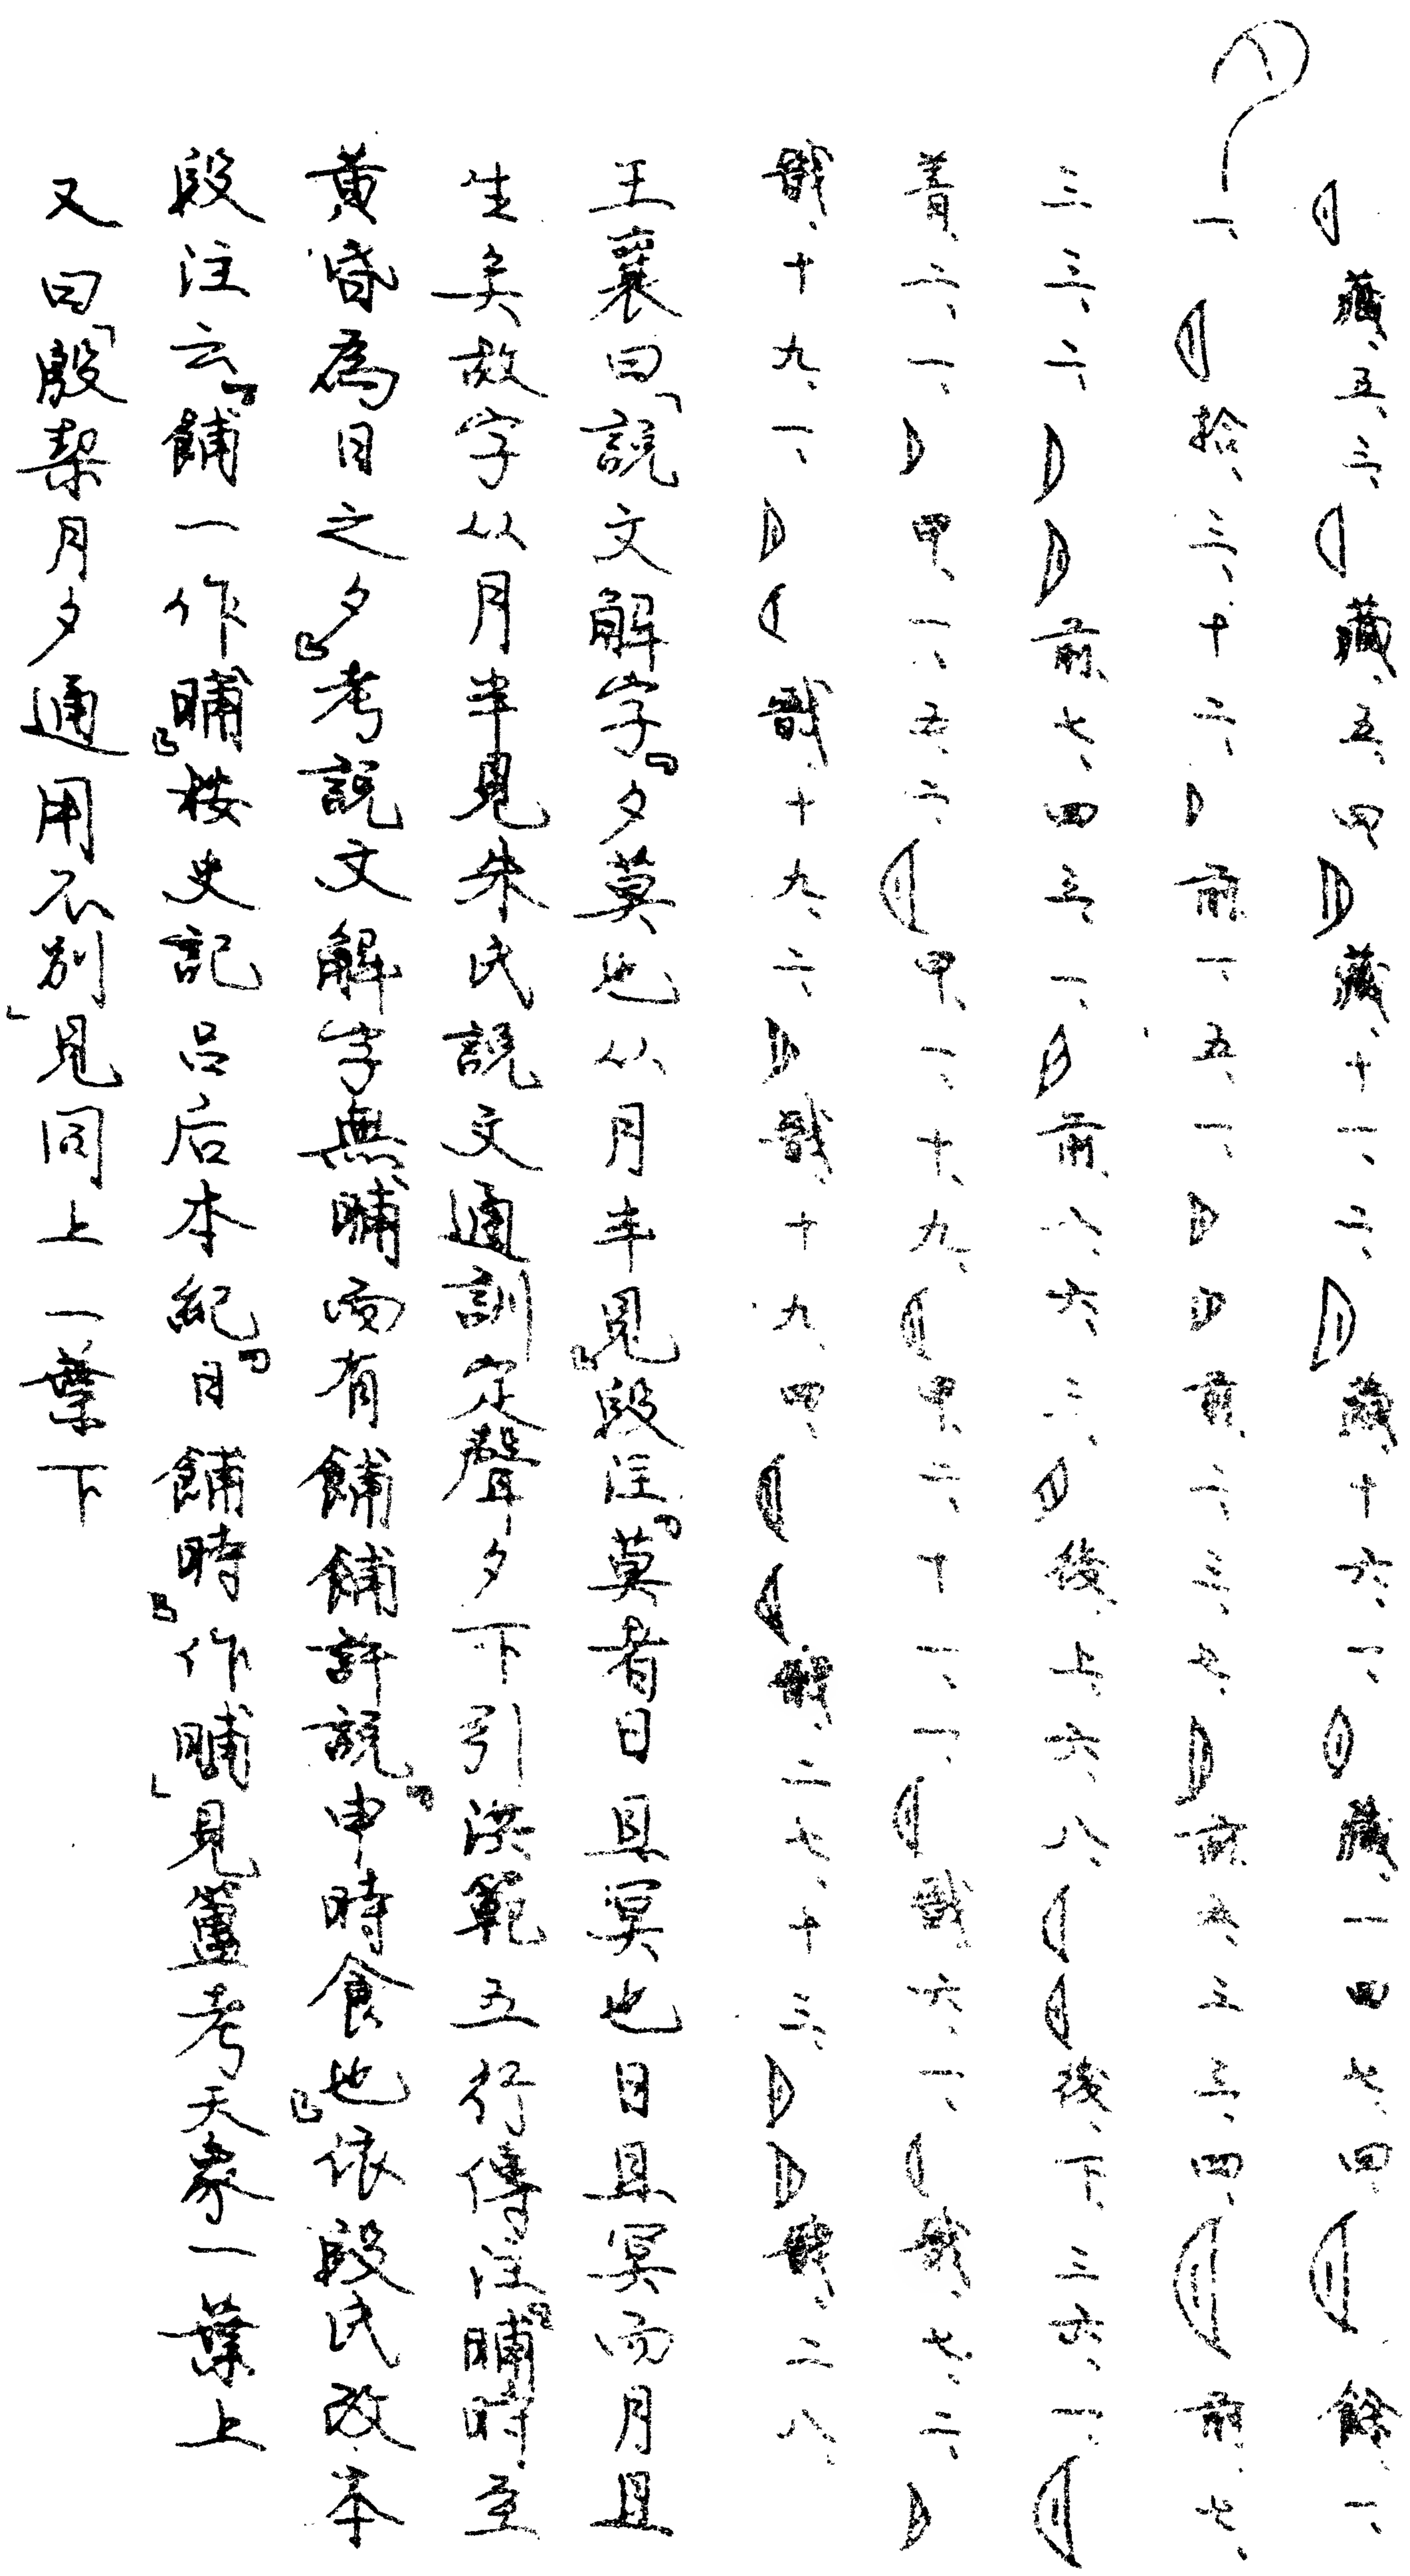 藏、五、三、藏、五、四、藏、十一、二、藏、十六、一、藏、一四七、四、餘、一、
一、拾、三、十二、前、一、五、一、前、二、三、七、前、五、三、四、前、七、
三三、二、前、七、四三、一、前、八、六、三、後、上、六、八、後、下、三六、一、
菁、六、一、甲、一、五、六、甲、一、十、九、甲、二、十一、一、戩、六、一、戩、七、二、
戩、十九、一、戩、十九、二、戩、十九、四、戩、二七、十三、戩、二八、
王襄曰「說文解字『夕莫也从月半見』段注『莫者日且冥也日且冥而月且
生矣故字从月半見朱氏說文通訓定聲夕下引洪範五行傳注『晡時至
黃昏為日之夕』考說文解字無晡而有餔餔許說『申時食也』依段氏改本
段注云『餔一作晡』按史記呂后本紀『日餔時』作晡」見簠考天象一葉上
又曰「殷栔月夕通用不別」見同上一葉下